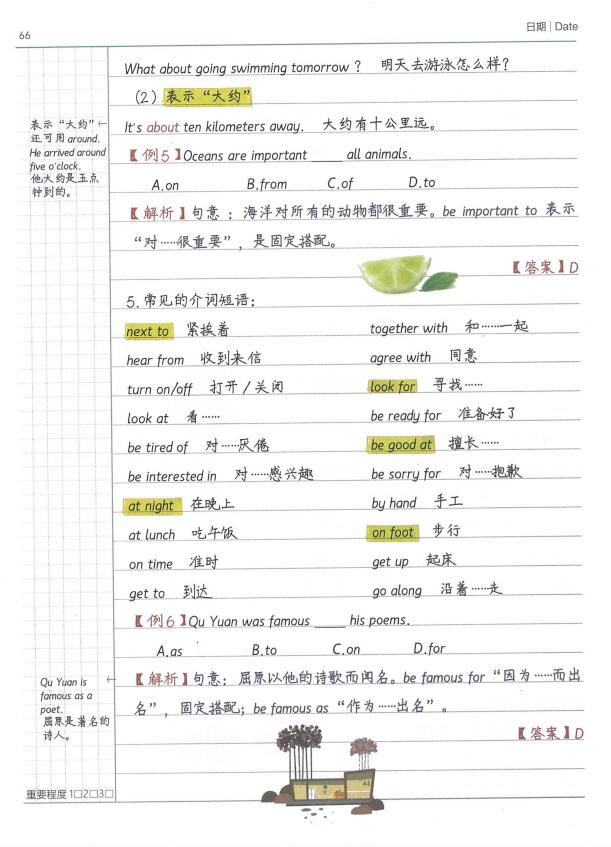 66
日期 | Date
What about going swimming tomorrow？ 明天去游泳怎么样？
（2）表示“大约”
It's about ten kilometers away. 大约有十公里远。
表示“大约”←
还可用 around.
He arrived around
five o'clock.
他大约是五点
钟到的。
【例5】Oceans are important ____ all animals.
A.on B.from C.of D.to
【解析】句意：海洋对所有的动物都很重要。be important to 表示
“对……很重要”，是固定搭配。
【答案】D
5.常见的介词短语：
next to 紧挨着 together with 和……一起
hear from 收到来信 agree with 同意
turn on/off 打开/关闭 look for 寻找……
look at 看…… be ready for 准备好了
be tired of 对……厌倦 be good at 擅长……
be interested in 对……感兴趣 be sorry for 对……抱歉
at night 在晚上 by hand 手工
at lunch 吃午饭 on foot 步行
on time 准时 get up 起床
get to 到达 go along 沿着……走
【例6】Qu Yuan was famous ____ his poems.
A.as B.to C.on D.for
【解析】句意：屈原以他的诗歌而闻名。be famous for“因为……而出
名”，固定搭配；be famous as“作为……出名”。
Qu Yuan is ←
famous as a
poet.
屈原是著名的
诗人。
【答案】D
重要程度 1□2□3□